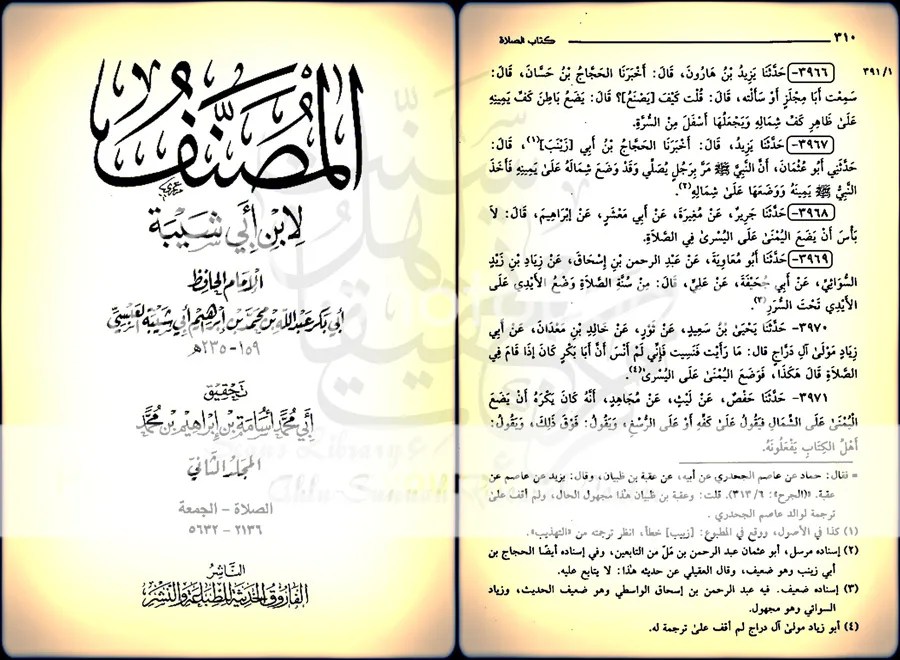 المصنف
لابن أبي شيبة
الإمام الحافظ
أبي بكر عبد الله بن محمد بن إبراهيم أبي شيبة العبسي
١٥٩-٢٣٥هـ
تحقيق
أبي محمد أسامة بن إبراهيم بن محمد
المجلد الثاني
الصلاة - الجمعة
٢١٣٦ - ٥٦٣٢
الناشر
الفاروق الحديثة للطباعة والنشر
٣١٠ كتاب الصلاة
٣٩١/١
٣٩٦٦- حَدَّثَنَا يَزِيدُ بْنُ هَارُونَ، قَالَ: أَخْبَرَنَا الحَجَّاجُ بْنُ حَسَّانَ، قَالَ:
سَمِعْت أَبَا مِجْلَزٍ أَوْ سَأَلْته، قَالَ: قُلْت كَيْفَ [يَصْنَعُ]؟ قَالَ: يَضَعُ بَاطِنَ كَفِّ يَمِينِهِ
عَلَىٰ ظَاهِرِ كَفِّ شِمَالِهِ وَيَجْعَلُهَا أَسْفَلَ مِنْ السُّرَّةِ.
٣٩٦٧- حَدَّثَنَا يَزِيدُ، قَالَ: أَخْبَرَنَا الحَجَّاجُ بْنُ أَبِي [زَيْنَبَ](١)، قَالَ:
حَدَّثَنِي أَبُو عُثْمَانَ، أَنَّ النَّبِيَّ ﷺ مَرَّ بِرَجُلٍ يُصَلِّي وَقَدْ وَضَعَ شِمَالَهُ عَلَىٰ يَمِينِهِ فَأَخَذَ
النَّبِيُّ ﷺ يَمِينَهُ وَوَضَعَهَا عَلَىٰ شِمَالِهِ(٢).
٣٩٦٨- حَدَّثَنَا جَرِيرٌ، عَنْ مُغِيرَةَ، عَنْ أَبِي مَعْشَرٍ، عَنْ إِبْرَاهِيمَ، قَالَ: لاَ
بَأْسَ أَنْ يَضَعَ اليُمْنَىٰ عَلَى اليُسْرَىٰ فِي الصَّلاَةِ.
٣٩٦٩- حَدَّثَنَا أَبُو مُعَاوِيَةَ، عَنْ عَبْدِ الرحمن بْنِ إِسْحَاقَ، عَنْ زِيَادِ بْنِ زَيْدٍ
السُّوَائِيِّ، عَنْ أَبِي جُحَيْفَةَ، عَنْ عَلِيٍّ، قَالَ: مِنْ سُنَّةِ الصَّلاَةِ وَضْعُ الأَيْدِي عَلَى
الأَيْدِي تَحْتَ السُّرَرِ(٣).
٣٩٧٠- حَدَّثَنَا يَحْيَىٰ بْنُ سَعِيدٍ، عَنْ ثَوْرٍ، عَنْ خَالِدِ بْنِ مَعْدَانَ، عَنْ أَبِي
زِيَادٍ مَوْلَىٰ آلِ دَرَّاجٍ قال: مَا رَأَيْت فَنَسِيت فَإِنِّي لَمْ أَنْسَ أَنَّ أَبَا بَكْرٍ كَانَ إِذَا قَامَ فِي
الصَّلاَةِ قَالَ هَكَذَا، فَوَضَعَ اليُمْنَىٰ عَلَى اليُسْرَىٰ(٤).
٣٩٧١- حَدَّثَنَا حَفْصٌ، عَنْ لَيْثٍ، عَنْ مُجَاهِدٍ، أَنَّهُ كَانَ يَكْرَهُ أَنْ يَضَعَ
الْيُمْنَىٰ عَلَى الشِّمَالِ فَيَقُولُ عَلَىٰ كَفِّهِ أَوْ عَلَى الرُّسْغِ، وَيَقُولُ: فَوْقَ ذَلِكَ، وَيَقُولُ:
أَهْلُ الكِتَابِ يَفْعَلُونَهُ.
= فقال: حماد عن عاصم الجحدري عن أبيه، عن عقبة بن ظبيان، وقال: يزيد عن عاصم عن
عقبة. «الجرح»: ٣١٣/٦). قلت: وعقبة بن ظبيان هذا مجهول الحال، ولم أقف على
ترجمة لوالد عاصم الجحدري.
(١) كذا في الأصول، ووقع في المطبوع: [زبيب] خطأ، انظر ترجمته من «التهذيب».
(٢) إسناده مرسل، أبو عثمان عبد الرحمن بن مُلّ من التابعين، وفي إسناده أيضًا الحجاج بن
أبي زينب وهو ضعيف، وقال العقيلي عن حديثه هذا: لا يتابع عليه.
(٣) إسناده ضعيف. فيه عبد الرحمن بن إسحاق الواسطي وهو ضعيف الحديث، وزياد
السوائي وهو مجهول.
(٤) أبو زياد مولىٰ آل دراج لم أقف علىٰ ترجمة له.